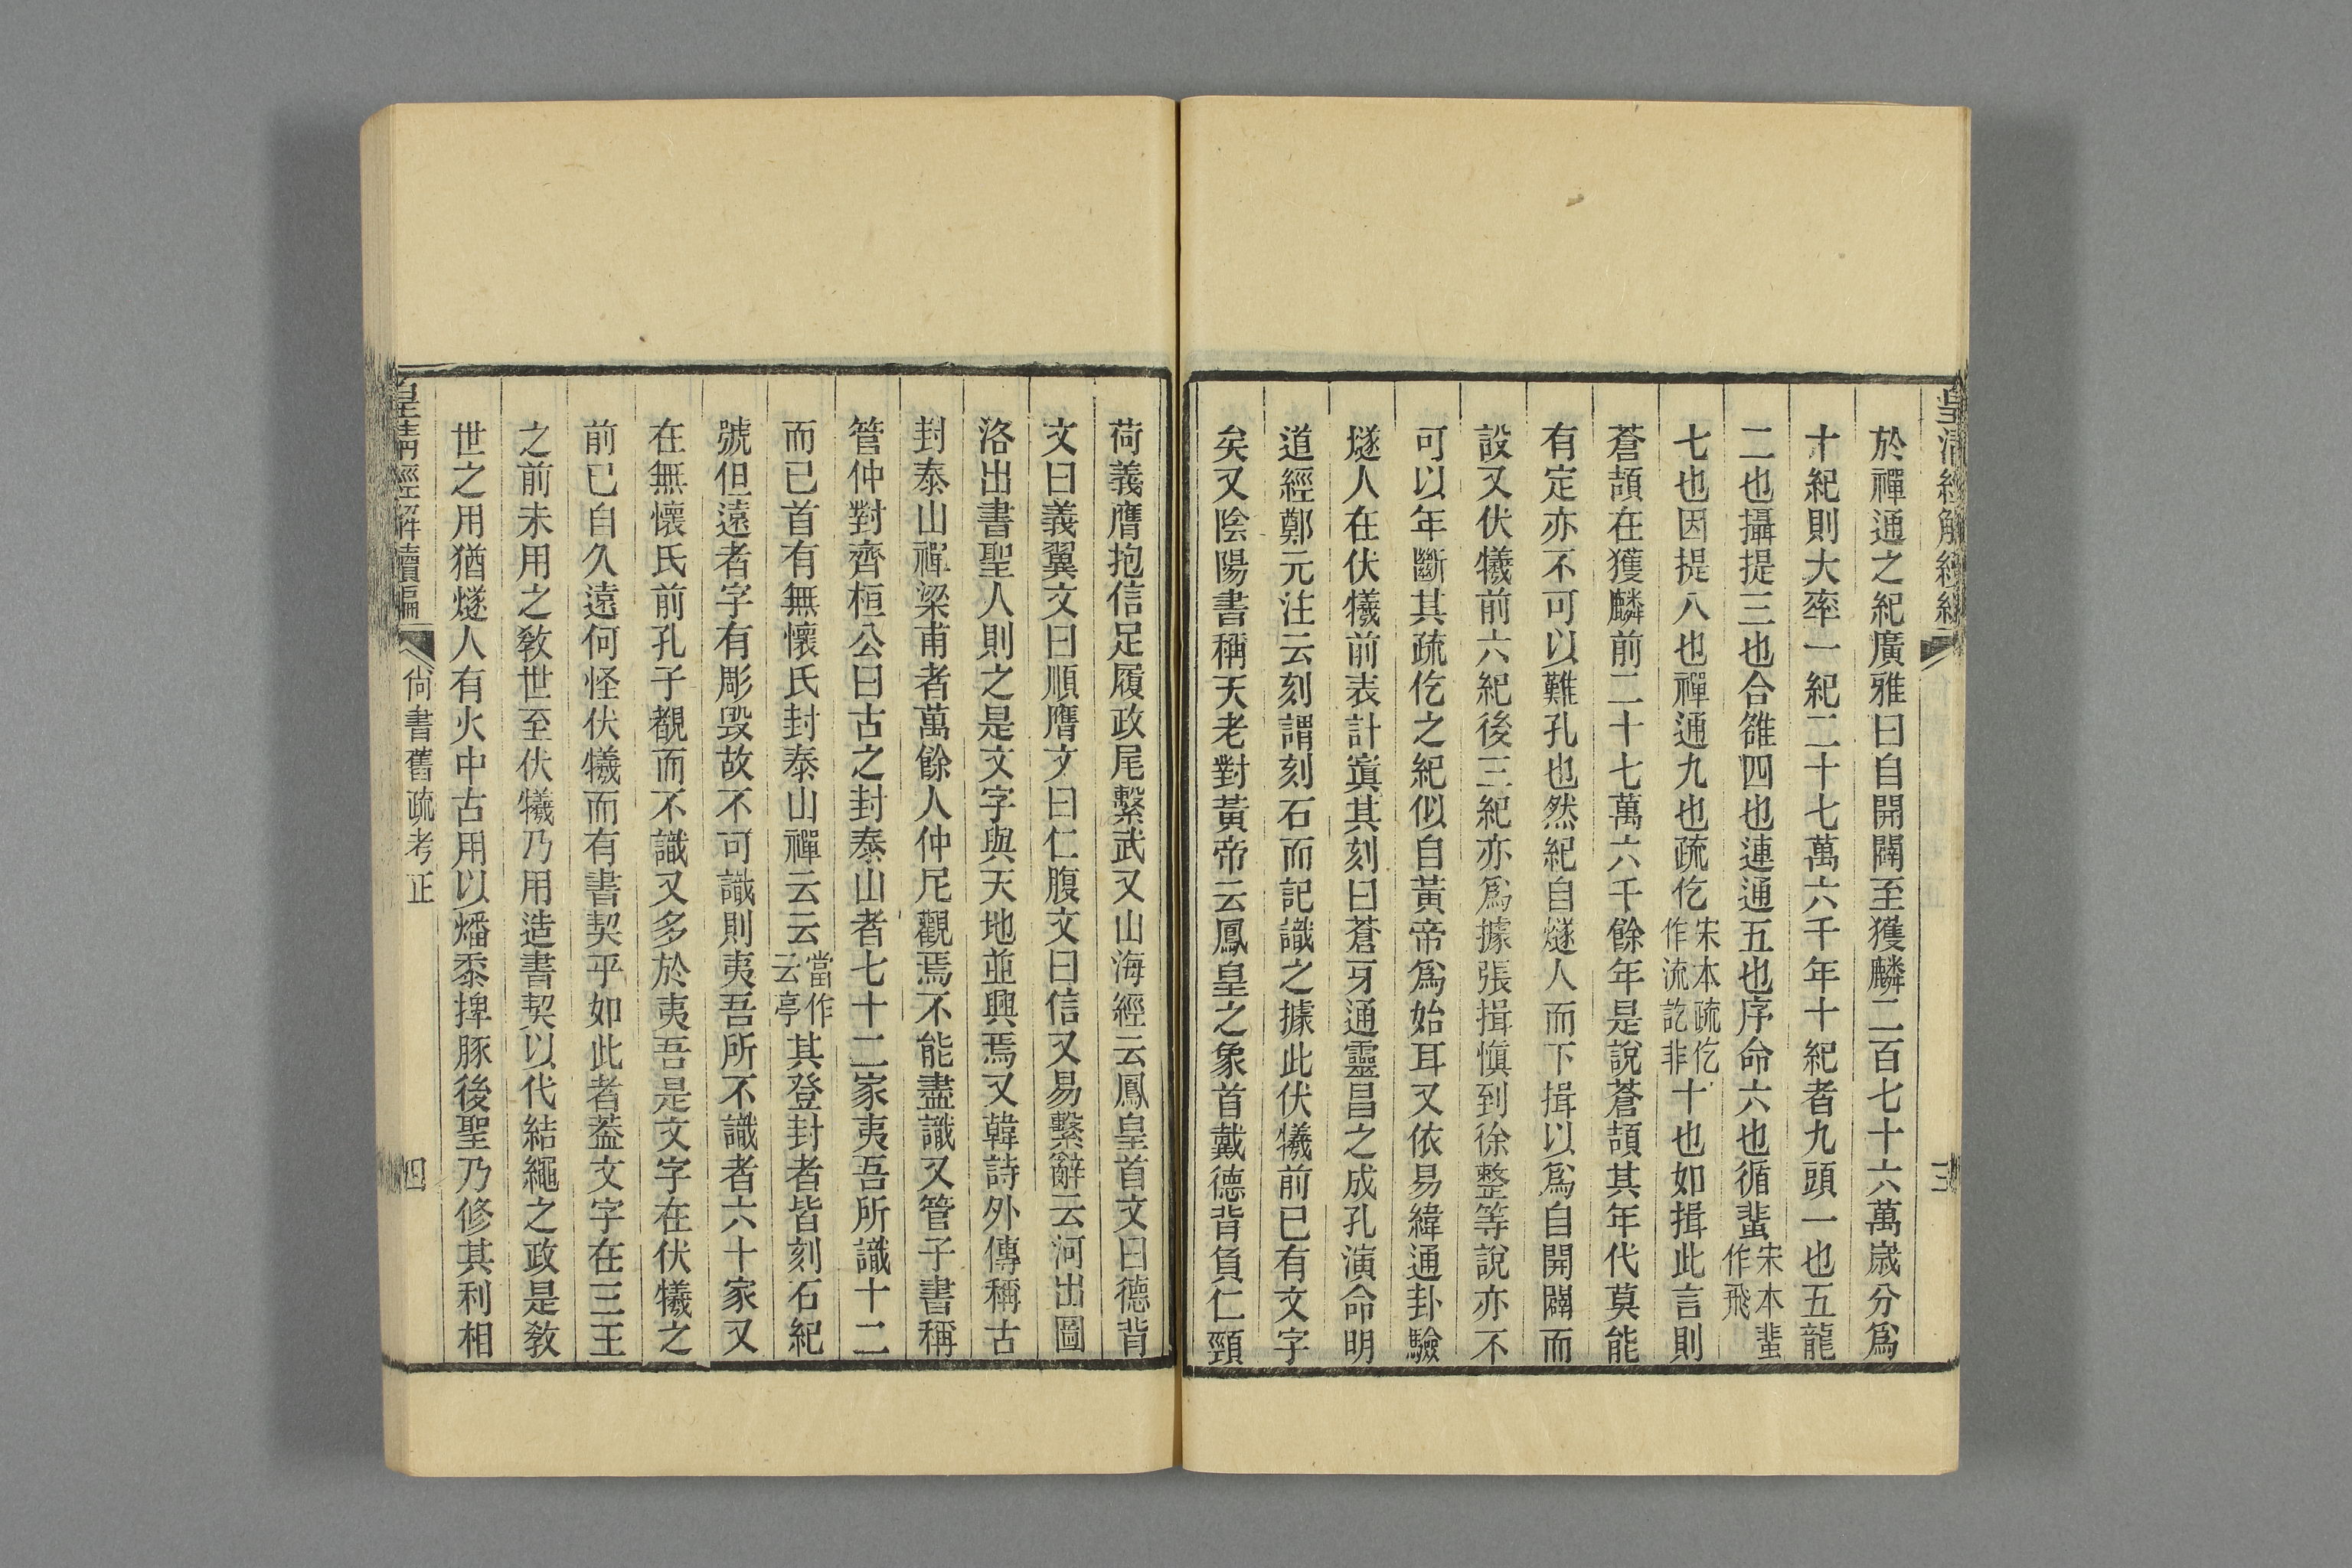 皇清經解續編
三
於禪通之紀廣雅曰自開闢至獲麟二百七十六萬歲分爲
十紀則大率一紀二十七萬六千年十紀者九頭一也五龍
二也攝提三也合雒四也連通五也序命六也循蜚宋本蜚作飛
七也因提八也禪通九也疏仡宋本疏仡作流訖非十也如揖此言則
蒼頡在獲麟前二十七萬六千餘年是說蒼頡其年代莫能
有定亦不可以難孔也然紀自燧人而下揖以爲自開闢而
設又伏犧前六紀後三紀亦爲據張揖愼到徐整等說亦不
可以年斷其疏仡之紀似自黃帝爲始耳又依易緯通卦驗
燧人在伏犧前表計寘其刻曰蒼牙通靈昌之成孔演命明
道經鄭元注云刻謂刻石而記識之據此伏犧前已有文字
矣又陰陽書稱天老對黃帝云鳳皇之象首戴德背負仁頸
荷義膺抱信足履政尾繫武又山海經云鳳皇首文曰德背
文曰義翼文曰順膺文曰仁腹文曰信又易繫辭云河出圖
洛出書聖人則之是文字與天地並興焉又韓詩外傳稱古
封泰山禪梁甫者萬餘人仲尼觀焉不能盡識又管子書稱
管仲對齊桓公曰古之封泰山者七十二家夷吾所識十二
而已首有無懷氏封泰山禪云云當作云亭其登封者皆刻石紀
號但遠者字有彫毀故不可識則夷吾所不識者六十家又
在無懷氏前孔子覩而不識又多於夷吾是文字在伏犧之
前已自久遠何怪伏犧而有書契乎如此者葢文字在三王
之前未用之敎世至伏犧乃用造書契以代結繩之政是敎
世之用猶燧人有火中古用以燔黍捭豚後聖乃修其利相
皇淸經解續編
尙書舊疏考正
四